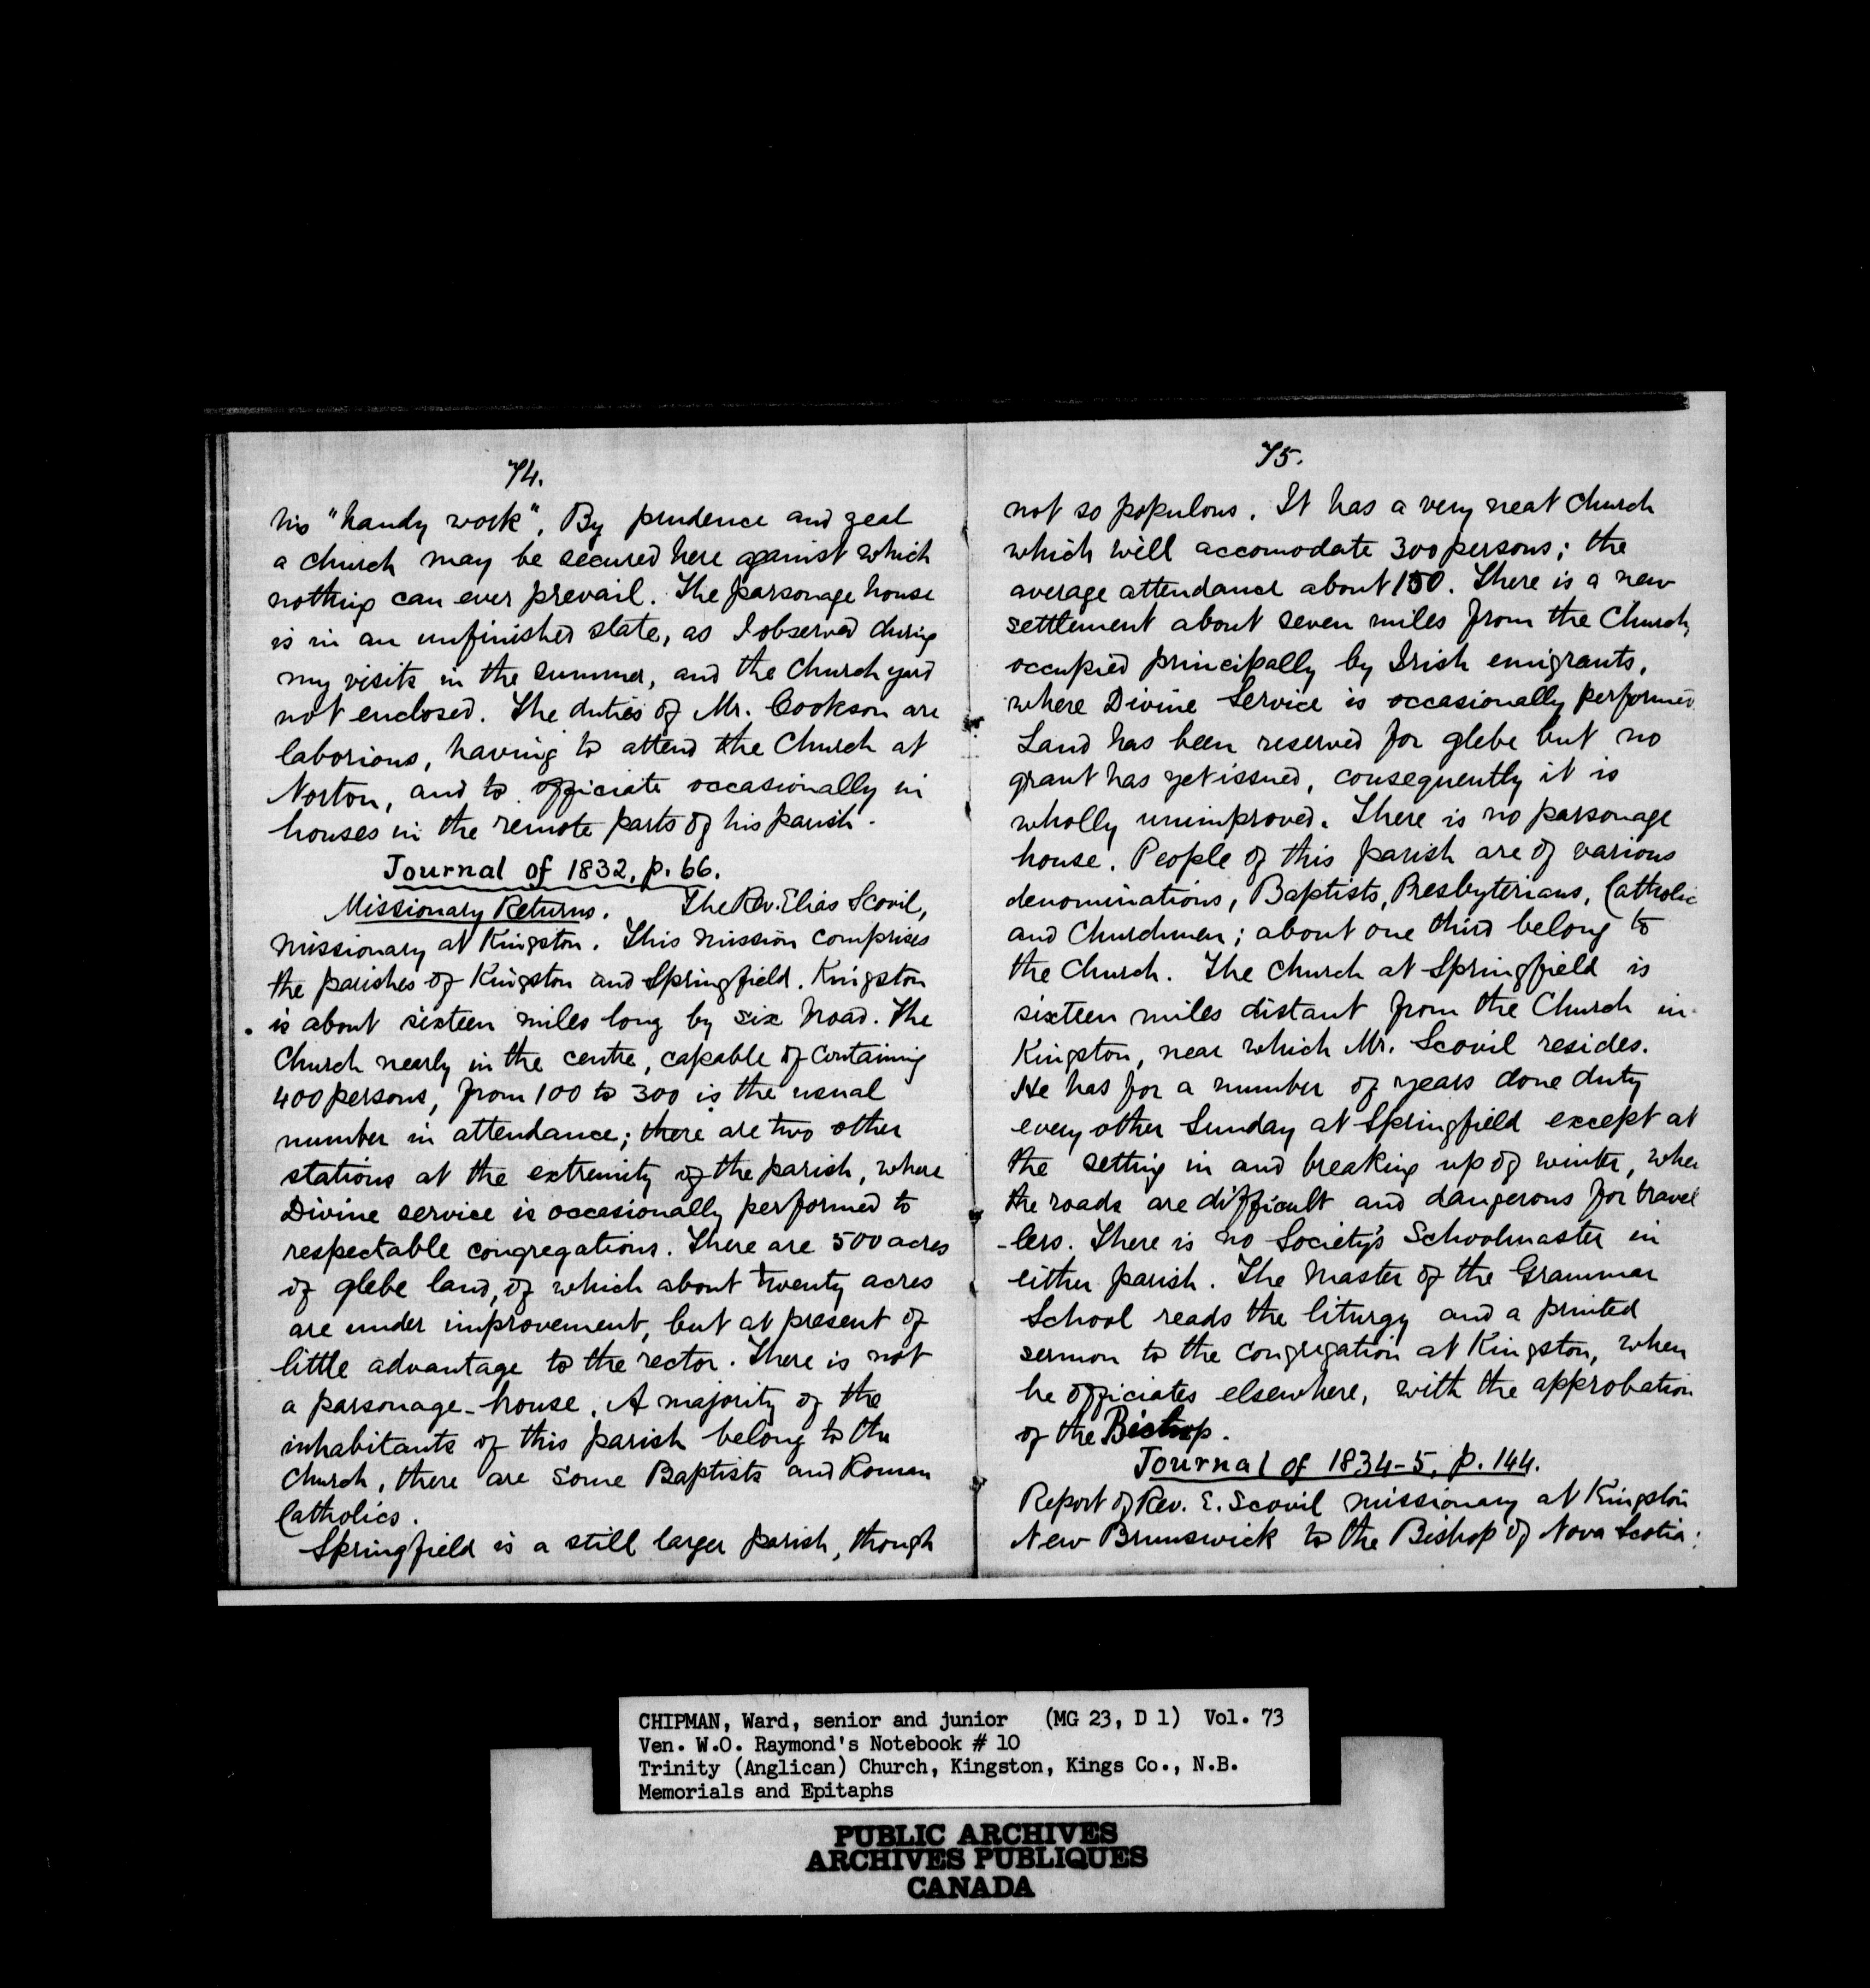 74.
his "handy work". By prudence and zeal
a church may be secured here against which
nothing can ever prevail. The parsonage house
is in an unfinished state, as I observed during
my visits in the summer, and the Church yard
not enclosed. The duties of Mr. Cookson are
laborious, having to attend the Church at
Norton, and to officiate occasionally in
houses in the remote parts of his parish.
Journal of 1832, p. 66.
Missionary Returns. The Rev. Elias Scovil,
missionary at Kingston. This mission comprises
the parishes of Kingston and Springfield. Kingston
is about sixteen miles long by six broad. The
Church nearly in the centre, capable of containing
400 persons, from 100 to 300 is the usual
number in attendance; there are two other
stations at the extremity of the parish, where
Divine service is occasionally performed to
respectable congregations. There are 500 acres
of glebe land, of which about twenty acres
are under improvement, but at present of
little advantage to the rector. There is not
a parsonage-house. A majority of the
inhabitants of this parish belong to the
Church, there are some Baptists and Roman
Catholics.
Springfield is a still larger parish, though
75.
not so populous. It has a very neat Church
which will accomodate 300 persons; the
average attendance about 150. There is a new
settlement about seven miles from the Church,
occupied principally by Irish emigrants,
where Divine Service is occasionally performed
Land has been reserved for glebe but no
grant has yet issued, consequently it is
wholly unimproved. There is no parsonage
house. People of this parish are of various
denominations, Baptists, Presbyterians, Catholic
and Churchmen; about one third belong to
the Church. The Church at Springfield is
sixteen miles distant from the Church in
Kingston, near which Mr. Scovil resides.
He has for a number of years done duty
every other Sunday at Springfield except at
the setting in and breaking up of winter, when
the roads are difficult and dangerous for travel
-lers. There is no Society's Schoolmaster in
either parish. The Master of the Grammar
School reads the liturgy and a printed
sermon to the congregation at Kingston, when
he officiates elsewhere, with the approbation
of the Bishop.
Journal of 1834-5, p. 144.
Report of Rev. E. Scovil missionary at Kingston
New Brunswick to the Bishop of Nova Scotia:
CHIPMAN, Ward, senior and junior (MG 23, D 1) Vol. 73
Ven. W.O. Raymond's Notebook # 10
Trinity (Anglican) Church, Kingston, Kings Co., N.B.
Memorials and Epitaphs
PUBLIC ARCHIVES
ARCHIVES PUBLIQUES
CANADA